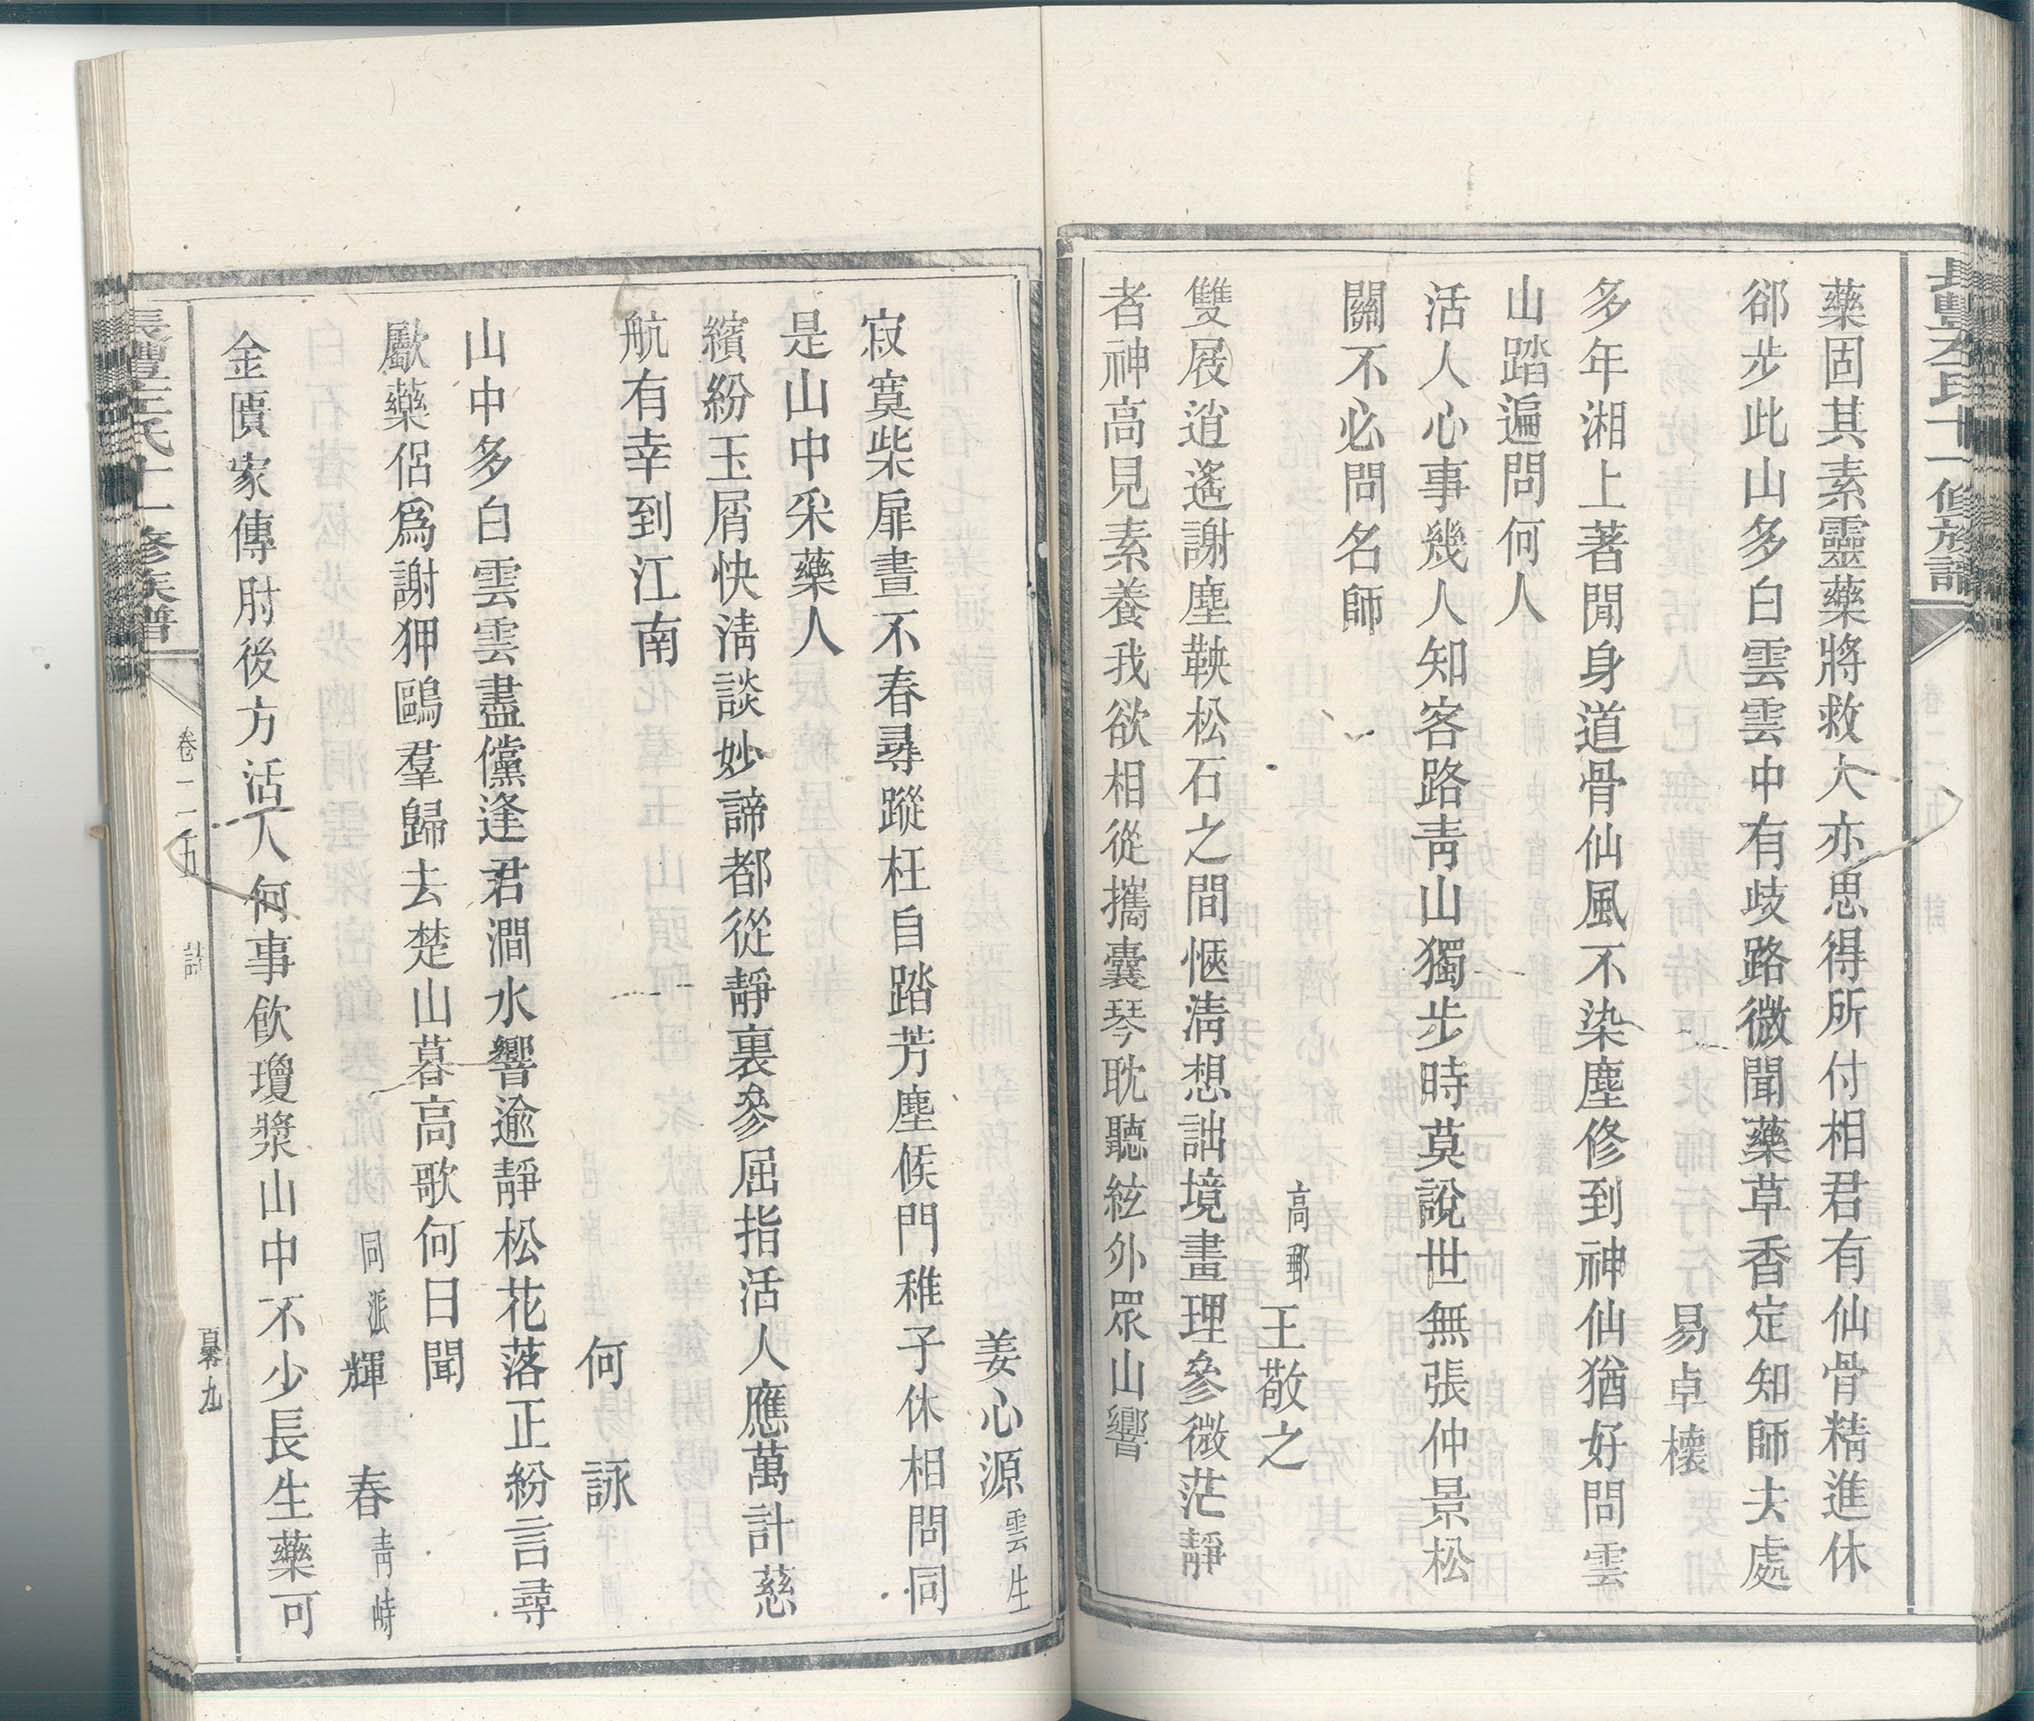 藥固其素靈藥將救大亦思得所付相君有仙骨精進休
郤步此山多白雲雲中有歧路微聞藥草香定知師去處
易卓櫰
多年湘上著閒身道骨仙風不染塵修到神仙猶好問雲
山踏遍問何人
活人心事幾人知客路靑山獨步時莫說世無張仲景松
關不必問名師
高郵王敬之
雙屐逍遙謝塵鞅松石之間愜淸想詘境畫理參微茫靜
者神高見素養我欲相從攜囊琴耽聽絃外眾山響
姜心源雲生
寂寞柴扉晝不春尋蹤枉自踏芳塵候門稚子休相問同
是山中采藥人
繽紛玉屑快淸談妙諦都從靜裏參屈指活人應萬計慈
航有幸到江南
何詠
山中多白雲雲盡儻逢君澗水響逾靜松花落正紛言尋
勵藥侶爲謝狎鷗羣歸去楚山暮高歌何日聞
同派輝春靑峙
金匱家傳肘後方活人何事飮瓊漿山中不少長生藥可
氏十一修族譜
卷二五
詩
百零九